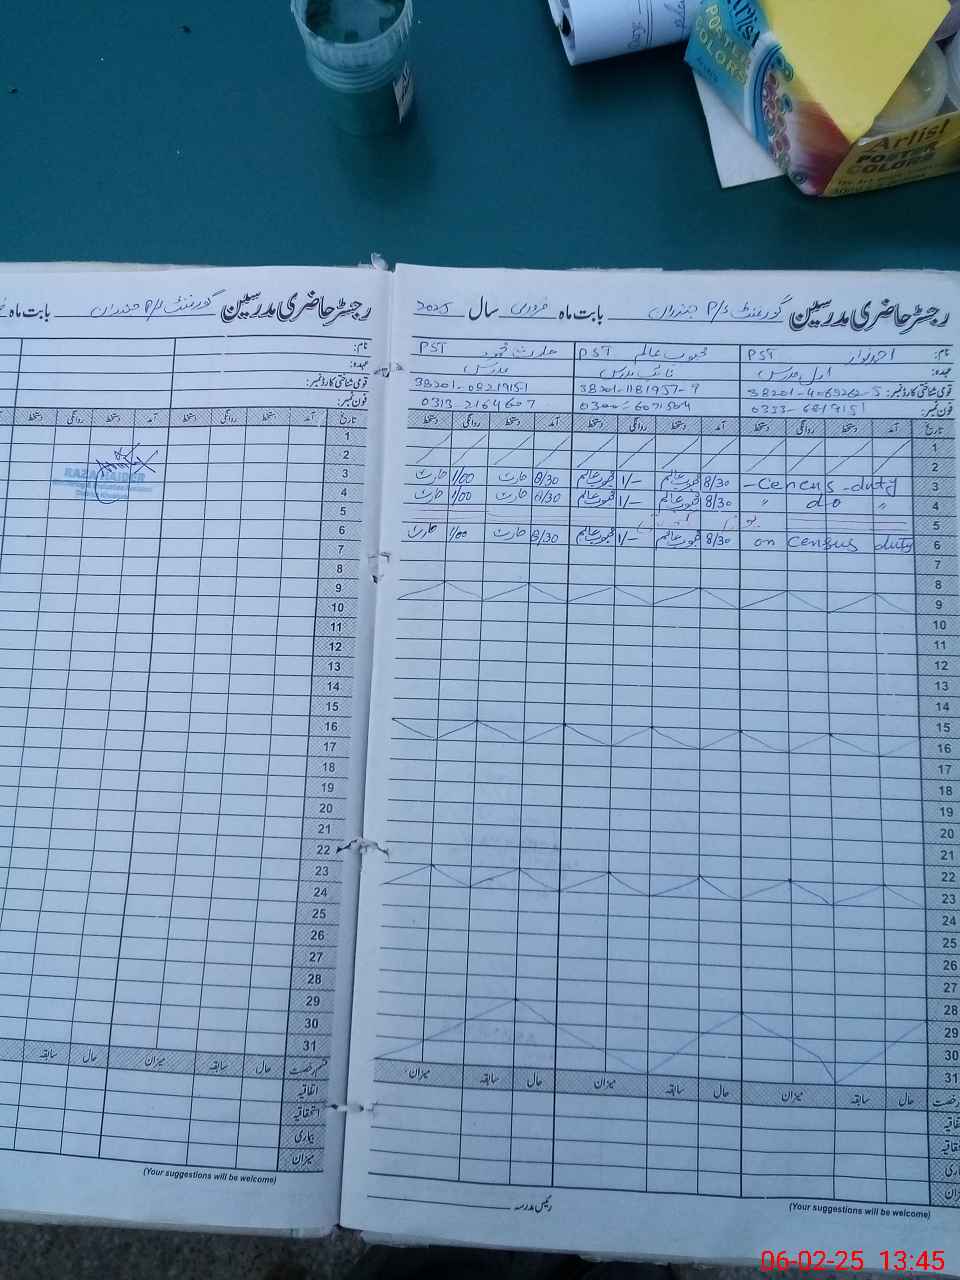 Artist
POSTER
COLORS
Artist
POSTER
COLORS
رجسٹر حاضری مدرسین گورنمنٹ P/S جندران بابت ماہ فروری سال 2025
نام: احمد نواز PST محبوب عالم PST حارث محمود PST
عہدہ: اول مدرس نائب مدرس مدرس
قومی شناختی کارڈ نمبر: 38201-1181957-9
فون نمبر: 0333-6819151 0313 2164607
تاریخ آمد دستخط روانگی دستخط آمد دستخط روانگی دستخط آمد دستخط روانگی دستخط
1
2
3 - Cencus - duty 8/30 محبوب عالم 1/- محبوب عالم 8/30 حارث 1/00 حارث
4 " do " 8/30 محبوب عالم 1/- محبوب عالم 8/30 حارث 1/00 حارث
5
6 on Census duty 8/30 محبوب عالم 1/- محبوب عالم 8/30 حارث 1/00 حارث
7
8
9
10
11
12
13
14
15
16
17
18
19
20
21
22
23
24
25
26
27
28
29
30
31
رخصت حال سابقہ میزان حال سابقہ میزان حال سابقہ میزان
رئیس مدرسہ
(Your suggestions will be welcome)
رجسٹر حاضری مدرسین گورنمنٹ P/S جندران بابت ماہ
نام:
عہدہ:
قومی شناختی کارڈ نمبر:
فون نمبر:
تاریخ آمد دستخط روانگی دستخط آمد دستخط روانگی دستخط
1
2
3
RAZA HAIDER
4
5
6
7
8
9
10
11
12
13
14
15
16
17
18
19
20
21
22
23
24
25
26
27
28
29
30
31
قسم رخصت حال سابقہ میزان حال سابقہ
اتفاقیہ
استحقاقیہ
بیماری
میزان
(Your suggestions will be welcome)
06-02-25 13:45